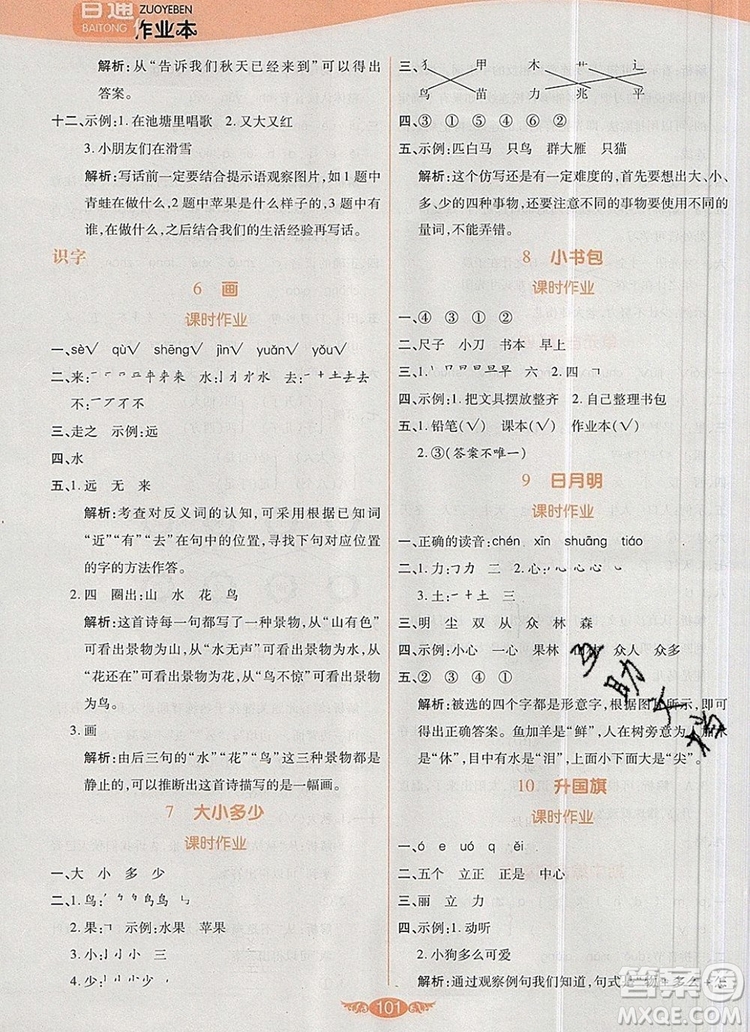 百通
BAITONG
ZUOYEBEN
作业本
解析:从“告诉我们秋天已经来到”可以得出
答案。
十二、示例:1. 在池塘里唱歌 2. 又大又红
3. 小朋友们在滑雪
解析:写话前一定要结合提示语观察图片,如1题中
青蛙在做什么,2题中苹果是什么样子的,3题中有
谁,在做什么,之后结合我们的生活经验再写话。
识字
6 画
课时作业
一、sè√ qù√ shēng√ jìn√ yuǎn√ yǒu√
二、来: 水: 去:
不:
三、走之 示例:远
四、水
五、1. 远 无 来
解析:考查对反义词的认知,可以根据已知词
“近”“有”“去”在句中的位置,寻找下句对应位置
的字的方法作答。
2. 四 圈出:山 水 花 鸟
解析:这首诗每一句都写了一种景物,从“山有色”
可看出景物为山,从“水无声”可看出景物为水,从
“花还在”可看出景物为花,从“鸟不惊”可看出景
物为鸟。
3. 画
解析:由后三句的“水”“花”“鸟”这三种景物都是
静止的,可以推断出这首诗描写的是一幅画。
7 大小多少
课时作业
一、大 小 多 少
二、1. 鸟:
2. 果: 示例:水果 苹果
3. 小:
4. 少:
三、犭 甲 木 艹 辶
鸟 苗 力 兆 平
四、③ ① ⑤ ② ⑥ ④
五、示例:匹白马 只鸟 群大雁 只猫
解析:这个仿写还有一定难度的,首先要想出大、小、
多、少的四种事物,还要注意不同的事物要用不同的
量词,不能弄错。
8 小书包
课时作业
一、④ ③ ① ②
二、尺子 小刀 书本 早上
三、1. 六 2. 四
四、示例:1. 把文具摆放整齐 2. 自己整理书包
五、1. 铅笔(√) 课本(√) 作业本(√)
2. ③(答案不唯一)
9 日月明
课时作业
一、正确的读音:chén xīn shuāng tiáo
二、1. 力: 二 2. 心:
3. 土: 三
三、明 尘 双 从 众 林 森
四、示例:小心 一心 果林 众人 众多
五、② ③ ① ④
解析:被选的四个字都是形意字,根据图片所示,即可
得出正确答案。鱼加羊是“鲜”,人在树旁意为“休”,
“休”,目中有水是“泪”,上面小下面大是“尖”。
10 升国旗
课时作业
一、ó e uó q ěi
二、五个 立正 正是 中国
三、丽 立 力
四、示例:1. 动听
2. 小狗多么可爱
解析:通过观察例句我们知道,句式是“物+多么+
互助文档
101
答案圈
MXQE.COM